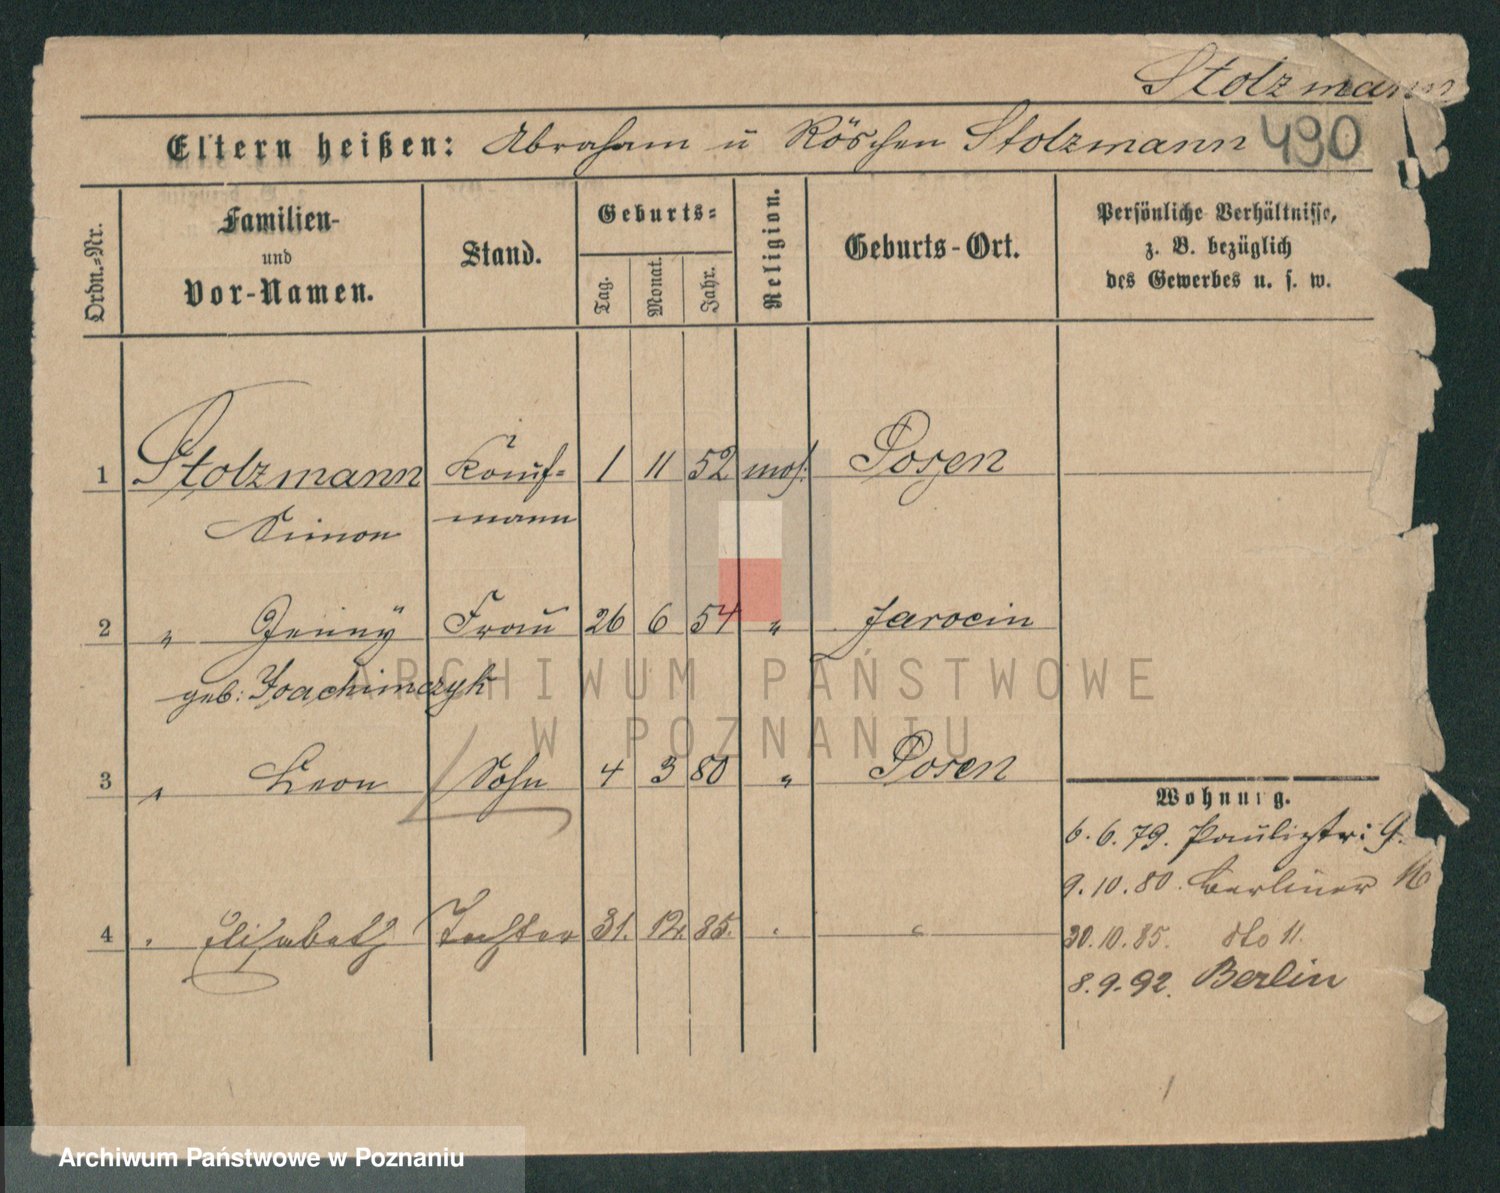 Stolzmann
Eltern heißen: Abraham ü Röschen Stolzmann 490
Ordn.-Nr.
Familien-
und
Vor-Namen.
Stand.
Geburts-
Tag.
Monat.
Jahr.
Religion.
Geburts-Ort.
Persönliche Verhältnisse,
z. B. bezüglich
des Gewerbes u. s. w.
1 Stolzmann Kauf- 1 11 52 mos. Posen
Simon mann
2 " Jenny Frau 26 6 54 " Jarocin
geb: Joachimczyk
3 " Leon Sohn 4 3 80 " Posen
Wohnung.
6.6.79. Paulistr: 9.
9.10.80. Berliner 16
4 " Elisabeth Tochter 31. 12. 85. " "
30.10.85. dto 11.
8.9.92. Berlin
ARCHIWUM PAŃSTWOWE
W POZNANIU
Archiwum Państwowe w Poznaniu